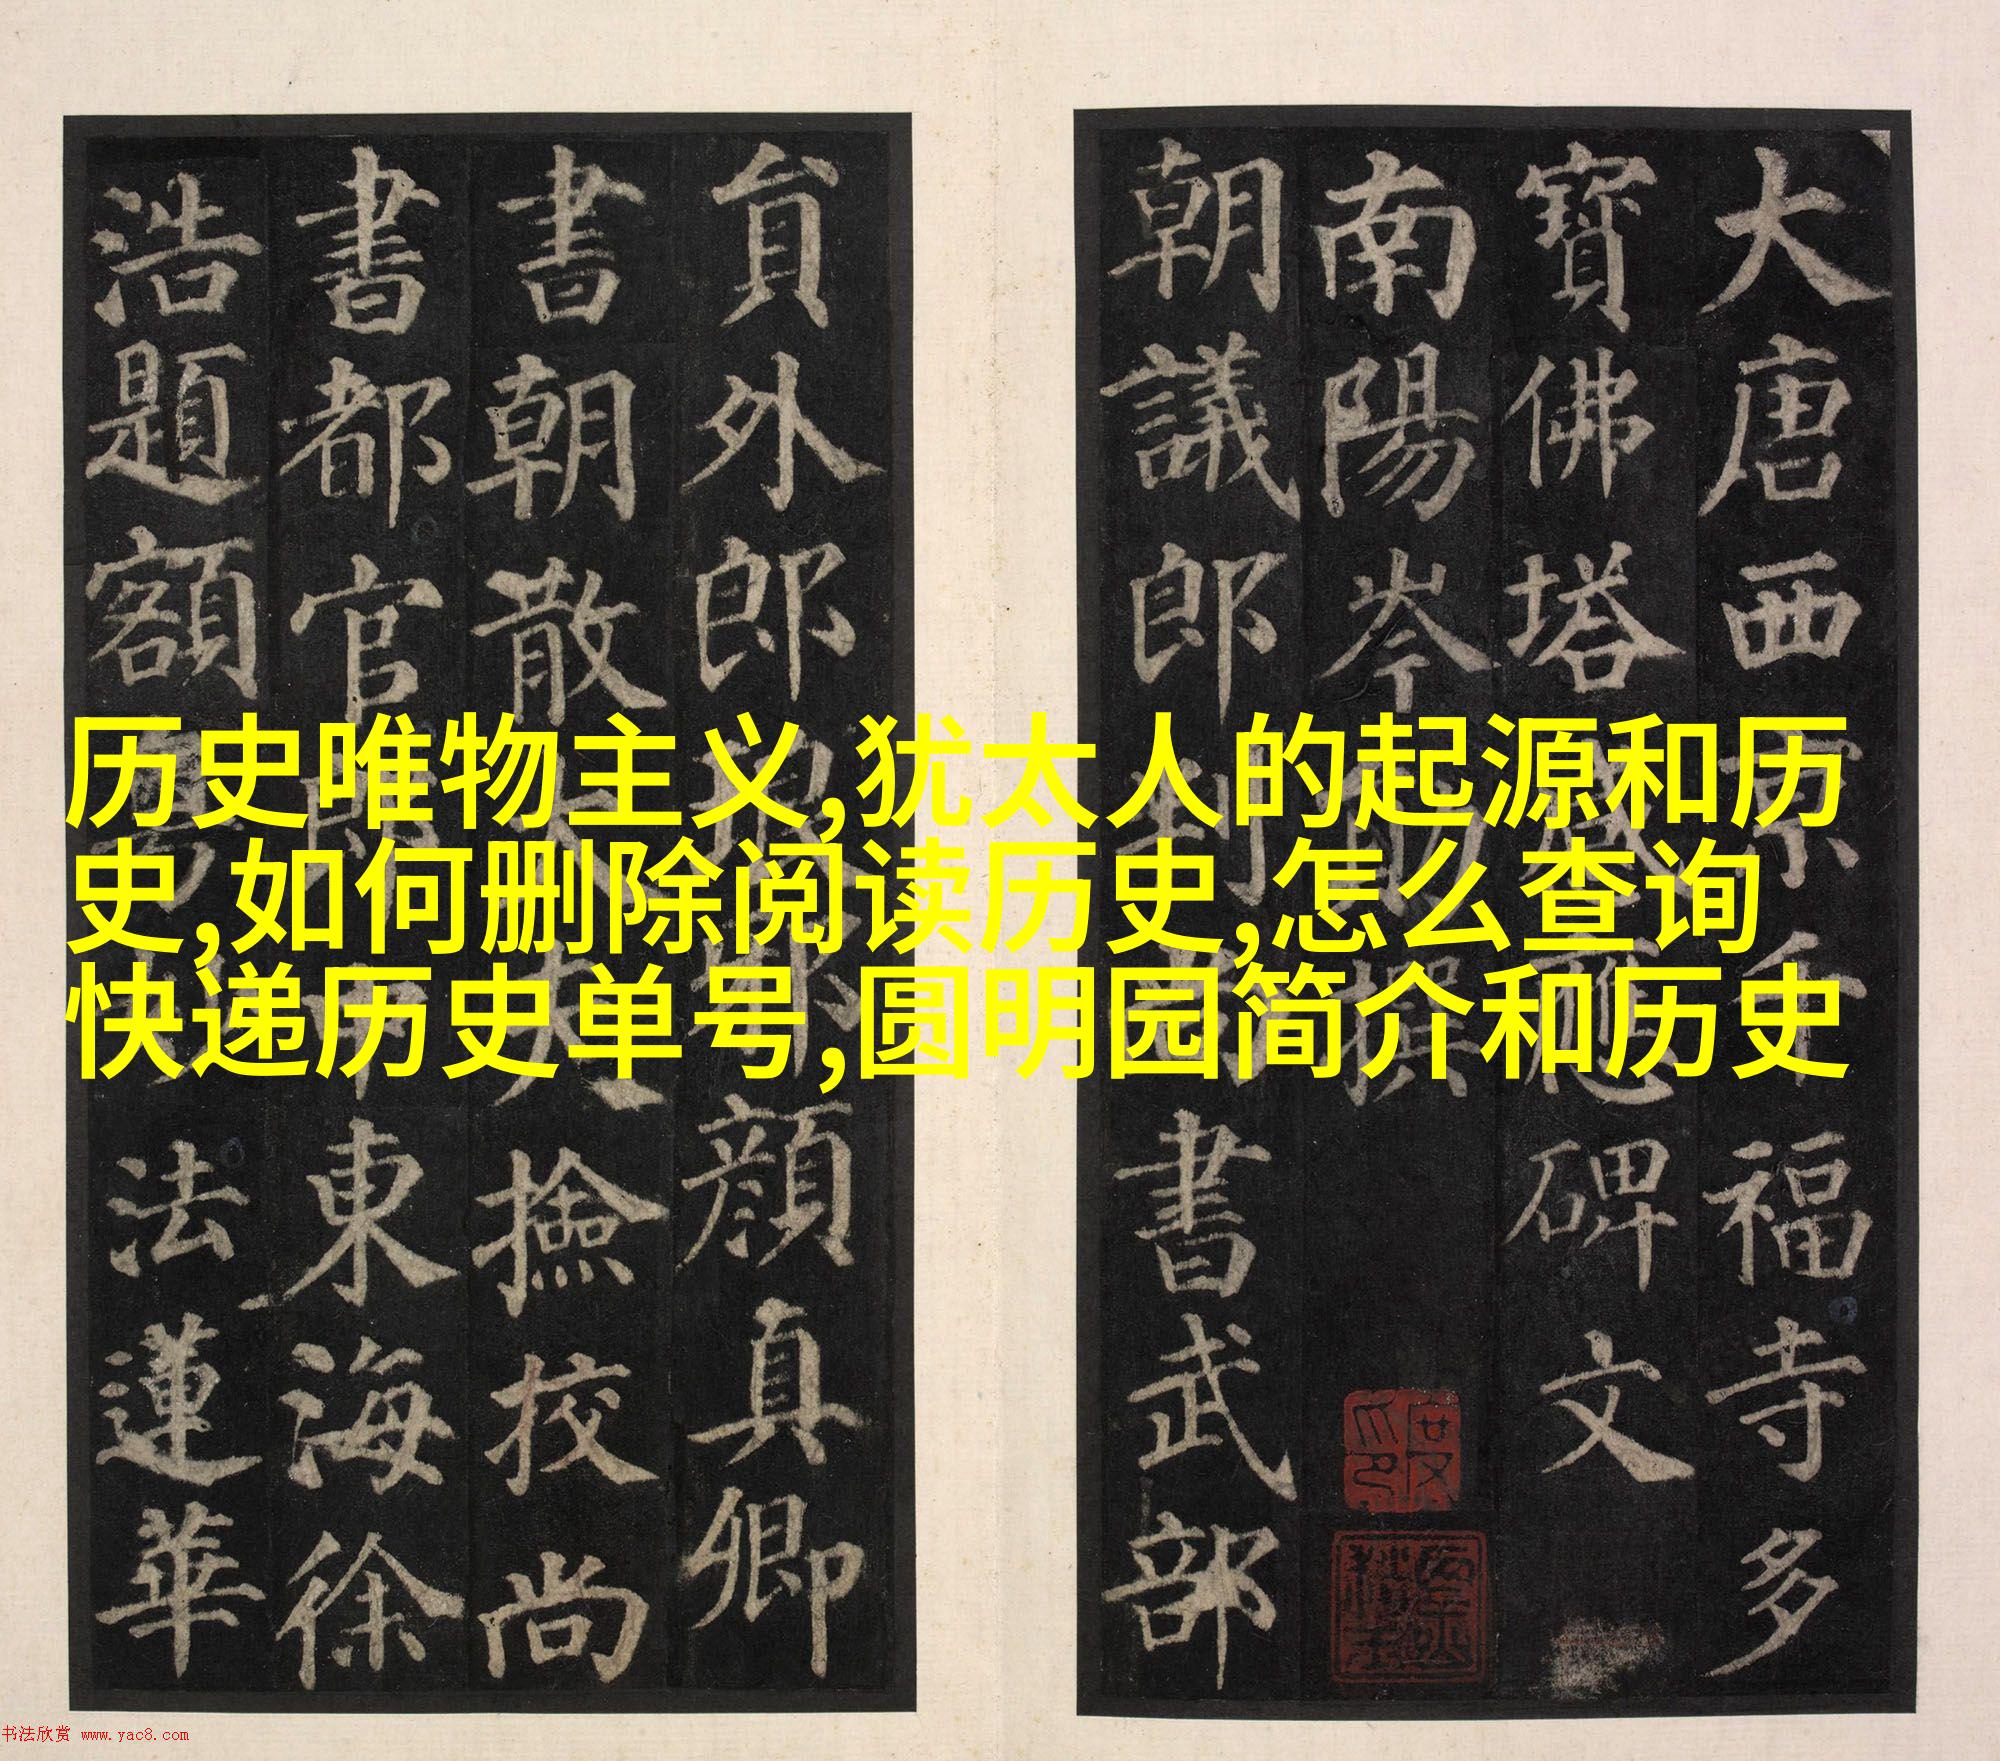 大唐西京千福寺多
寶佛塔感應碑文
南陽岑勛撰
朝議郎判尚書武部
貟外郎琅邪顏真卿
書朝散大夫撿校尚
書都官郎中東海徐
浩題額粵妙法蓮華
历史唯物主义,犹太人的起源和历
史,如何删除阅读历史,怎么查询
快递历史单号,圆明园简介和历史
书法欣赏 www.yac8.com